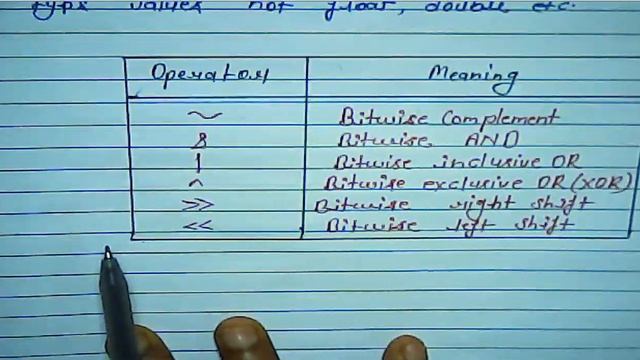 type values not float, double etc.
Operators Meaning
~ Bitwise Complement
& Bitwise AND
| Bitwise inclusive OR
^ Bitwise exclusive OR (XOR)
>> Bitwise right shift
<< Bitwise left shift